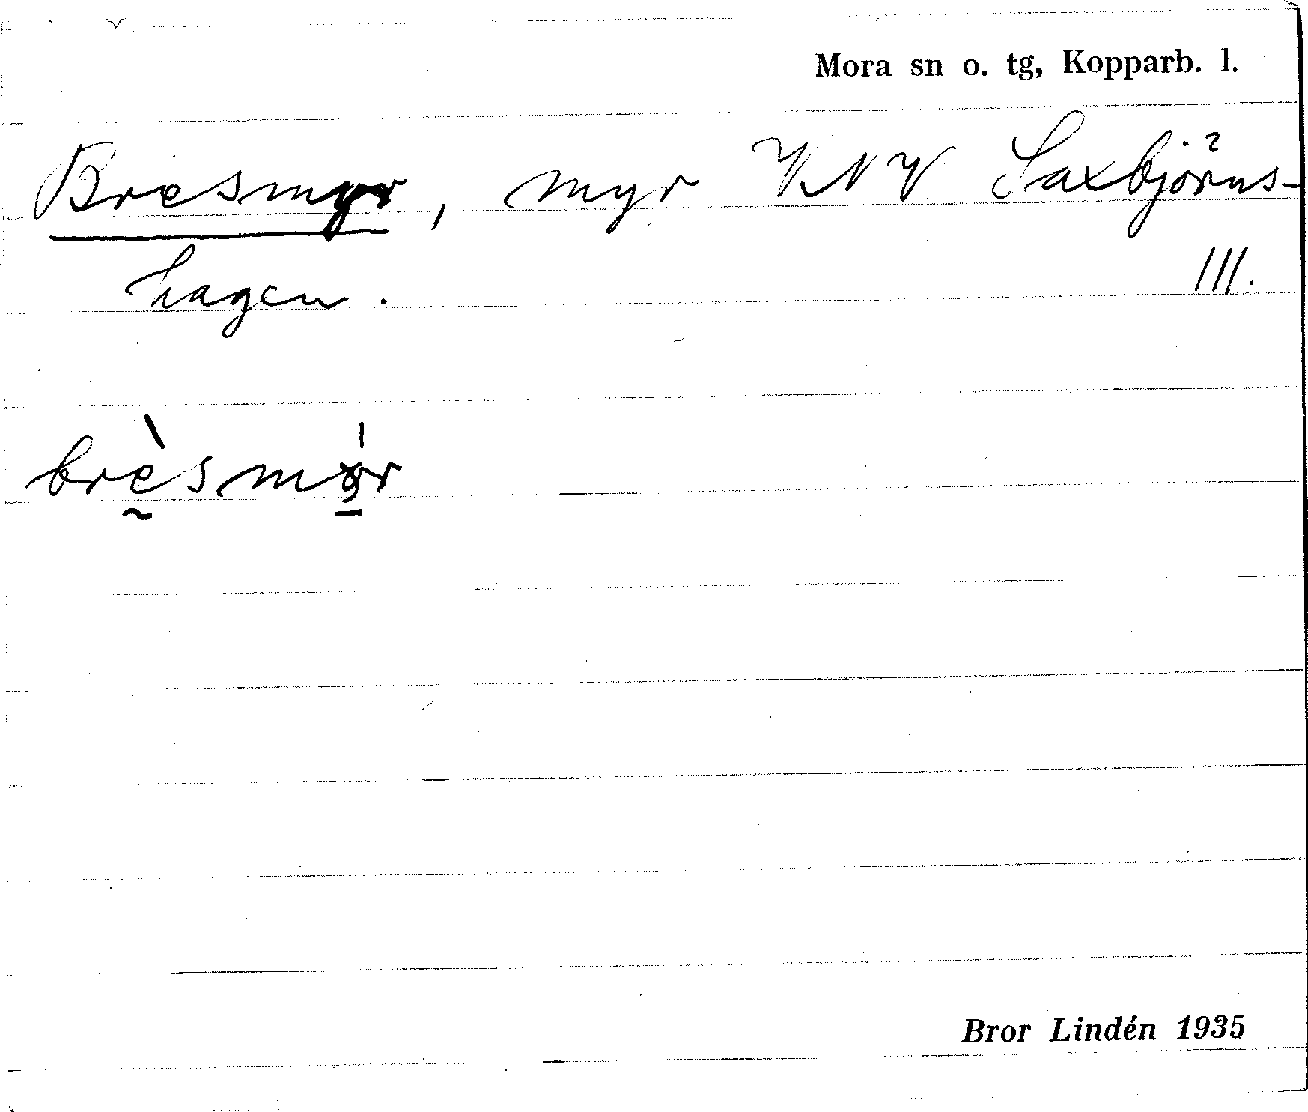 Mora sn o. tg, Kopparb. l.
Bresmyr, myr VNV Saxbjörns-
hagen. III.
brèsmör
Bror Lindén 1935